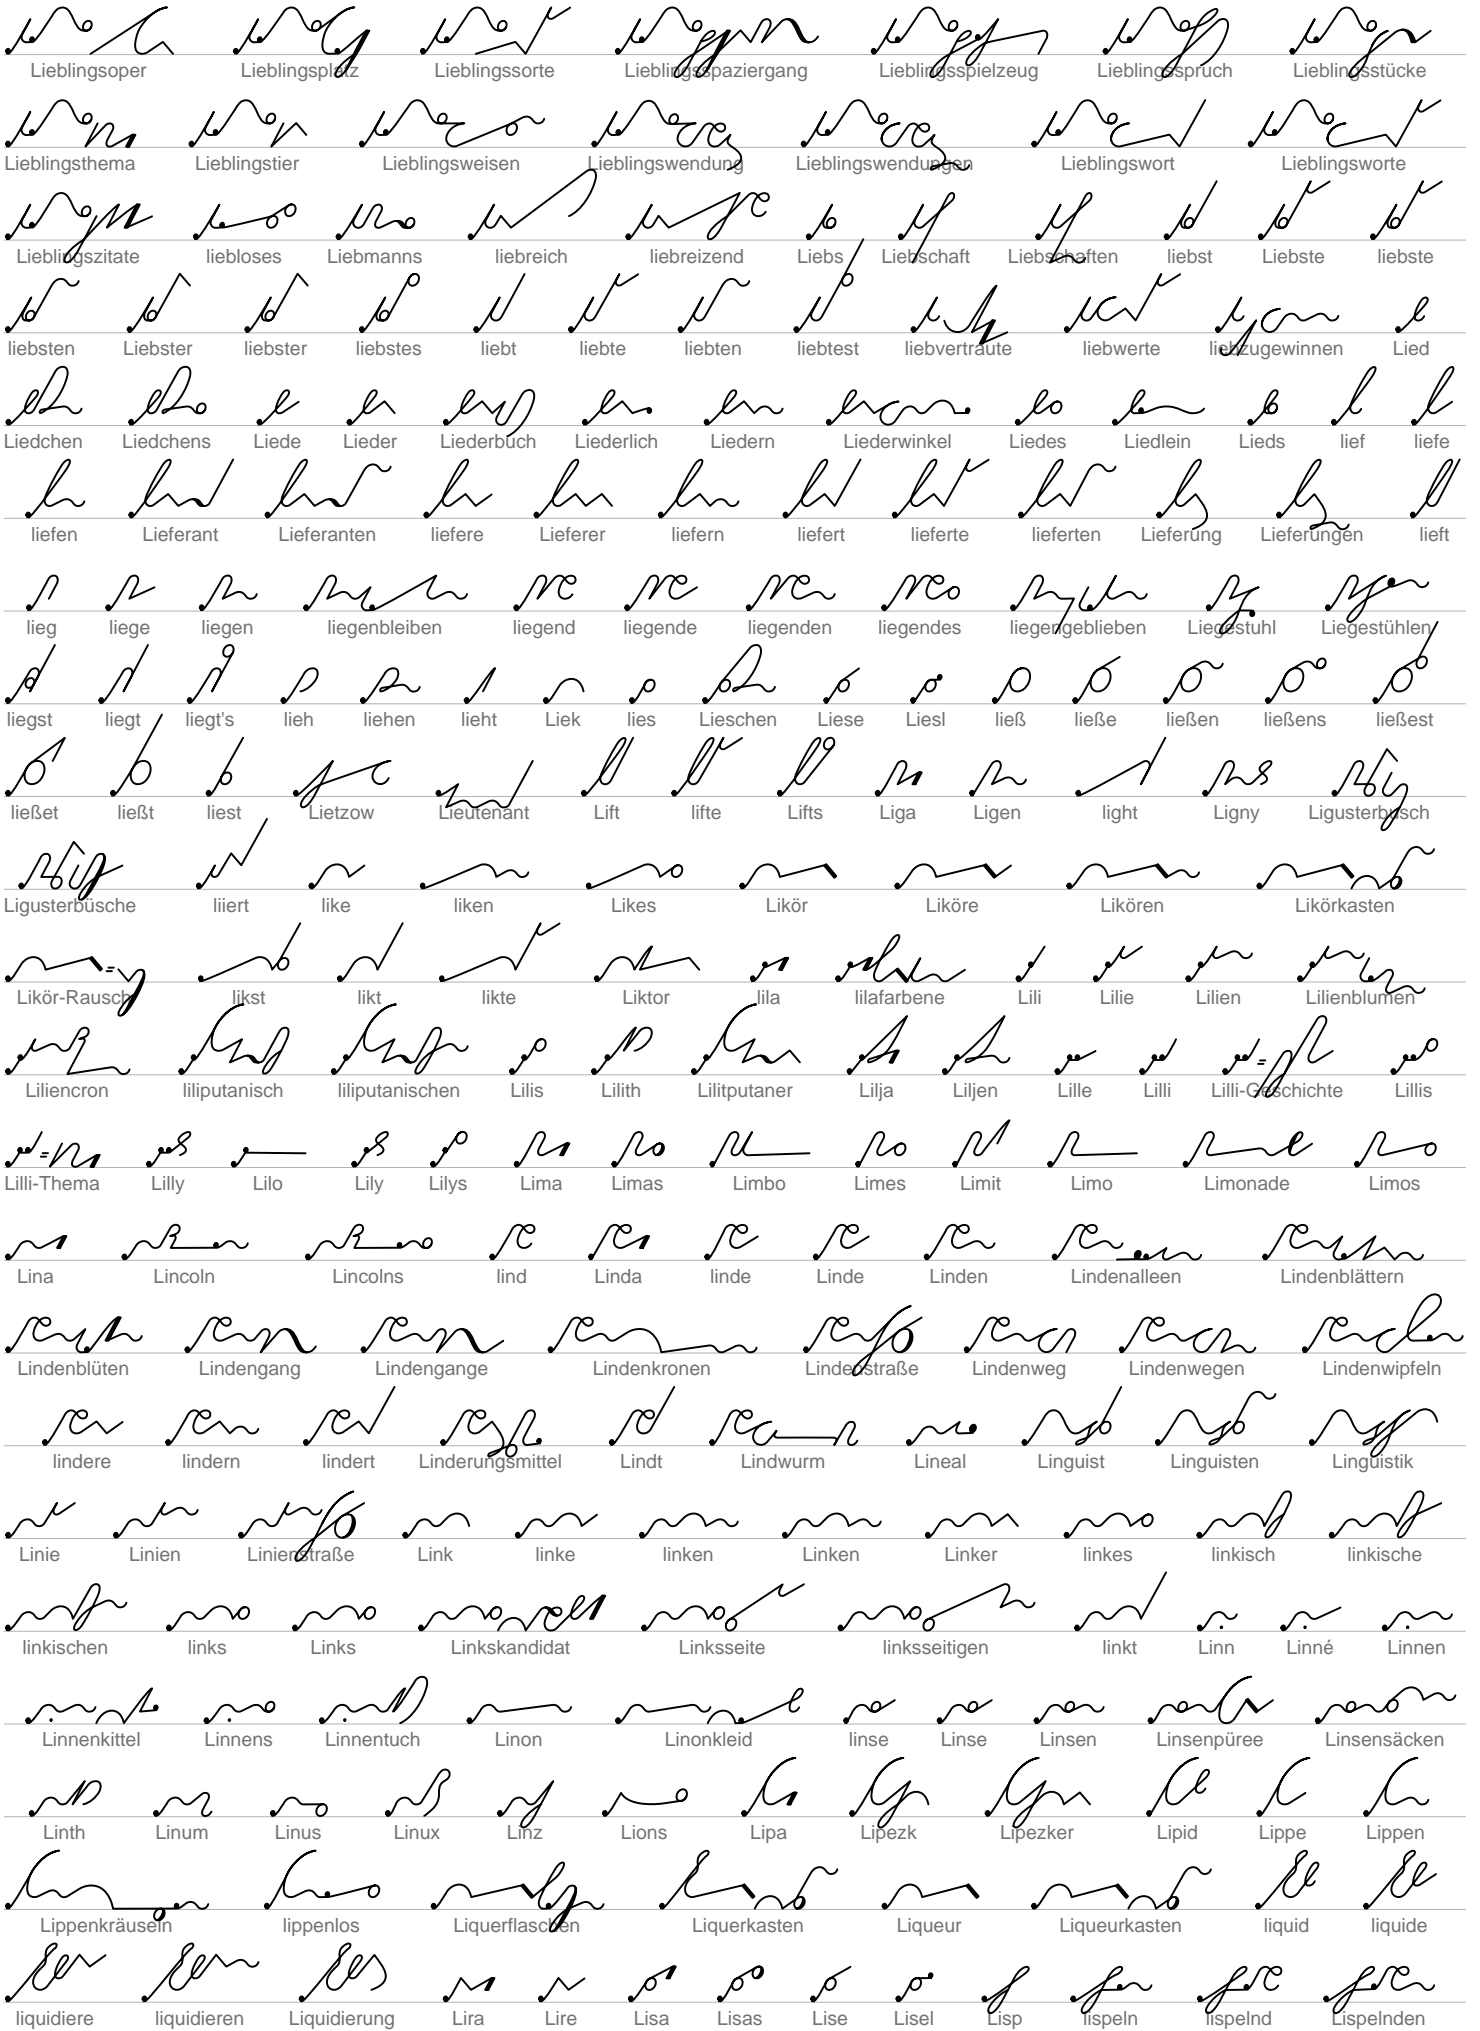 Lieblingsoper Lieblingsplatz Lieblingssorte Lieblingsspaziergang Lieblingsspielzeug Lieblingsspruch Lieblingsstücke
Lieblingsthema Lieblingstier Lieblingsweisen Lieblingswendung Lieblingswendungen Lieblingswort Lieblingsworte
Lieblingszitate liebloses Liebmanns liebreich liebreizend Liebs Liebschaft Liebschaften liebst Liebste liebste
liebsten Liebster liebster liebstes liebt liebte liebten liebtest liebvertraute liebwerte liebzugewinnen Lied
Liedchen Liedchens Liede Lieder Liederbuch Liederlich Liedern Liederwinkel Liedes Liedlein Lieds lief liefe
liefen Lieferant Lieferanten liefere Lieferer liefern liefert lieferte lieferten Lieferung Lieferungen lieft
lieg liege liegen liegenbleiben liegend liegende liegenden liegendes liegengeblieben Liegestuhl Liegestühlen
liegst liegt liegt's lieh liehen lieht Liek lies Lieschen Liese Liesl ließ ließe ließen ließens ließest
ließet ließt liest Lietzow Lieutenant Lift lifte Lifts Liga Ligen light Ligny Ligusterbusch
Ligusterbüsche liiert like liken Likes Likör Liköre Likören Likörkasten
Likör-Rausch likst likt likte Liktor lila lilafarbene Lili Lilie Lilien Lilienblumen
Liliencron liliputanisch liliputanischen Lilis Lilith Lilitputaner Lilja Liljen Lille Lilli Lilli-Geschichte Lillis
Lilli-Thema Lilly Lilo Lily Lilys Lima Limas Limbo Limes Limit Limo Limonade Limos
Lina Lincoln Lincolns lind Linda linde Linde Linden Lindenalleen Lindenblättern
Lindenblüten Lindengang Lindengange Lindenkronen Lindenstraße Lindenweg Lindenwegen Lindenwipfeln
lindere lindern lindert Linderungsmittel Lindt Lindwurm Lineal Linguist Linguisten Linguistik
Linie Linien Linienstraße Link linke linken Linken Linker linkes linkisch linkische
linkischen links Links Linkskandidat Linksseite linksseitigen linkt Linn Linné Linnen
Linnenkittel Linnens Linnentuch Linon Linonkleid linse Linse Linsen Linsenpüree Linsensäcken
Linth Linum Linus Linux Linz Lions Lipa Lipezk Lipezker Lipid Lippe Lippen
Lippenkräuseln lippenlos Liquerflaschen Liquerkasten Liqueur Liqueurkasten liquid liquide
liquidiere liquidieren Liquidierung Lira Lire Lisa Lisas Lise Lisel Lisp lispeln lispelnd Lispelnden